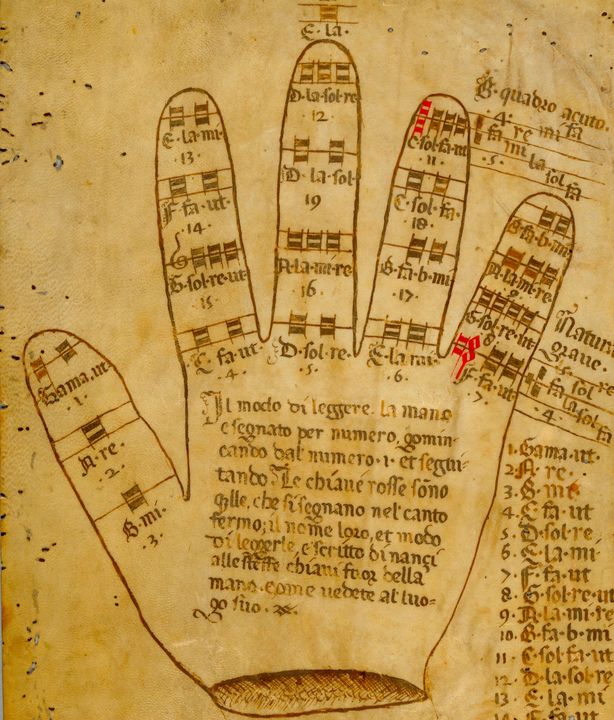 E · la ·
D · la · sol · re
12 ·
D · la · sol
19
A · la · mi · re
· 16 ·
D · sol · re ·
· 5 ·
E · la · mi
13 ·
F · fa · ut
· 14 ·
G · sol · re · ut
15
C · fa · ut
· 4 ·
C · sol · fa · ut
11
C · sol · fa
18 ·
B · fa · b · mi
· 17 ·
E · la · mi ·
· 6 ·
B · quadro acuto
· 4 ·
fa re mi fa
· 5 · fa mi la sol fa
B · fa · b · mi
A · la · mi · re
9
G · sol · re · ut
8
F · fa · ut
· 7 ·
Natura
grave ·
· 5 · fa sol
· 4 · fa la sol fa
Gama · ut
· 1 ·
A · re ·
· 2 ·
B · mi
· 3 ·
Il modo di leggere · la mano
e segnato per numero, comin-
cando dal numero · 1 · et segui-
tando · Le chiave rosse sono
q̃lle, che si segnano nel canto
fermo; il nome loro, et modo
di leggerle, e scritto di nanci
alle stesse chiavi fuor della
mano · come vedete al luo-
go suo ·
1 · Gama · ut ·
2 · A · re ·
3 · B · mi
4 · C · fa · ut
5 · D · sol · re
6 · E · la · mi ·
7 · F · fa · ut
8 · G · sol · re · ut
9 · A · la · mi · re
10 · B · fa · b · mi
11 · C · sol · fa · ut
12 · D · la · sol · re
13 · E · la · mi
14 · F · fa · ut